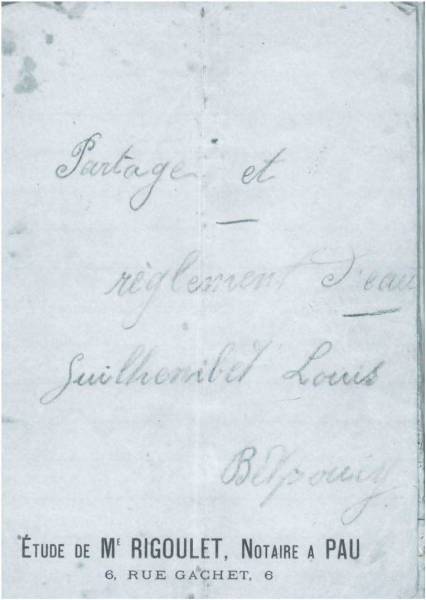 Partage et
règlement d'eau
Louis
ÉTUDE DE Mᴱ RIGOULET, NOTAIRE A PAU
6, RUE GACHET, 6